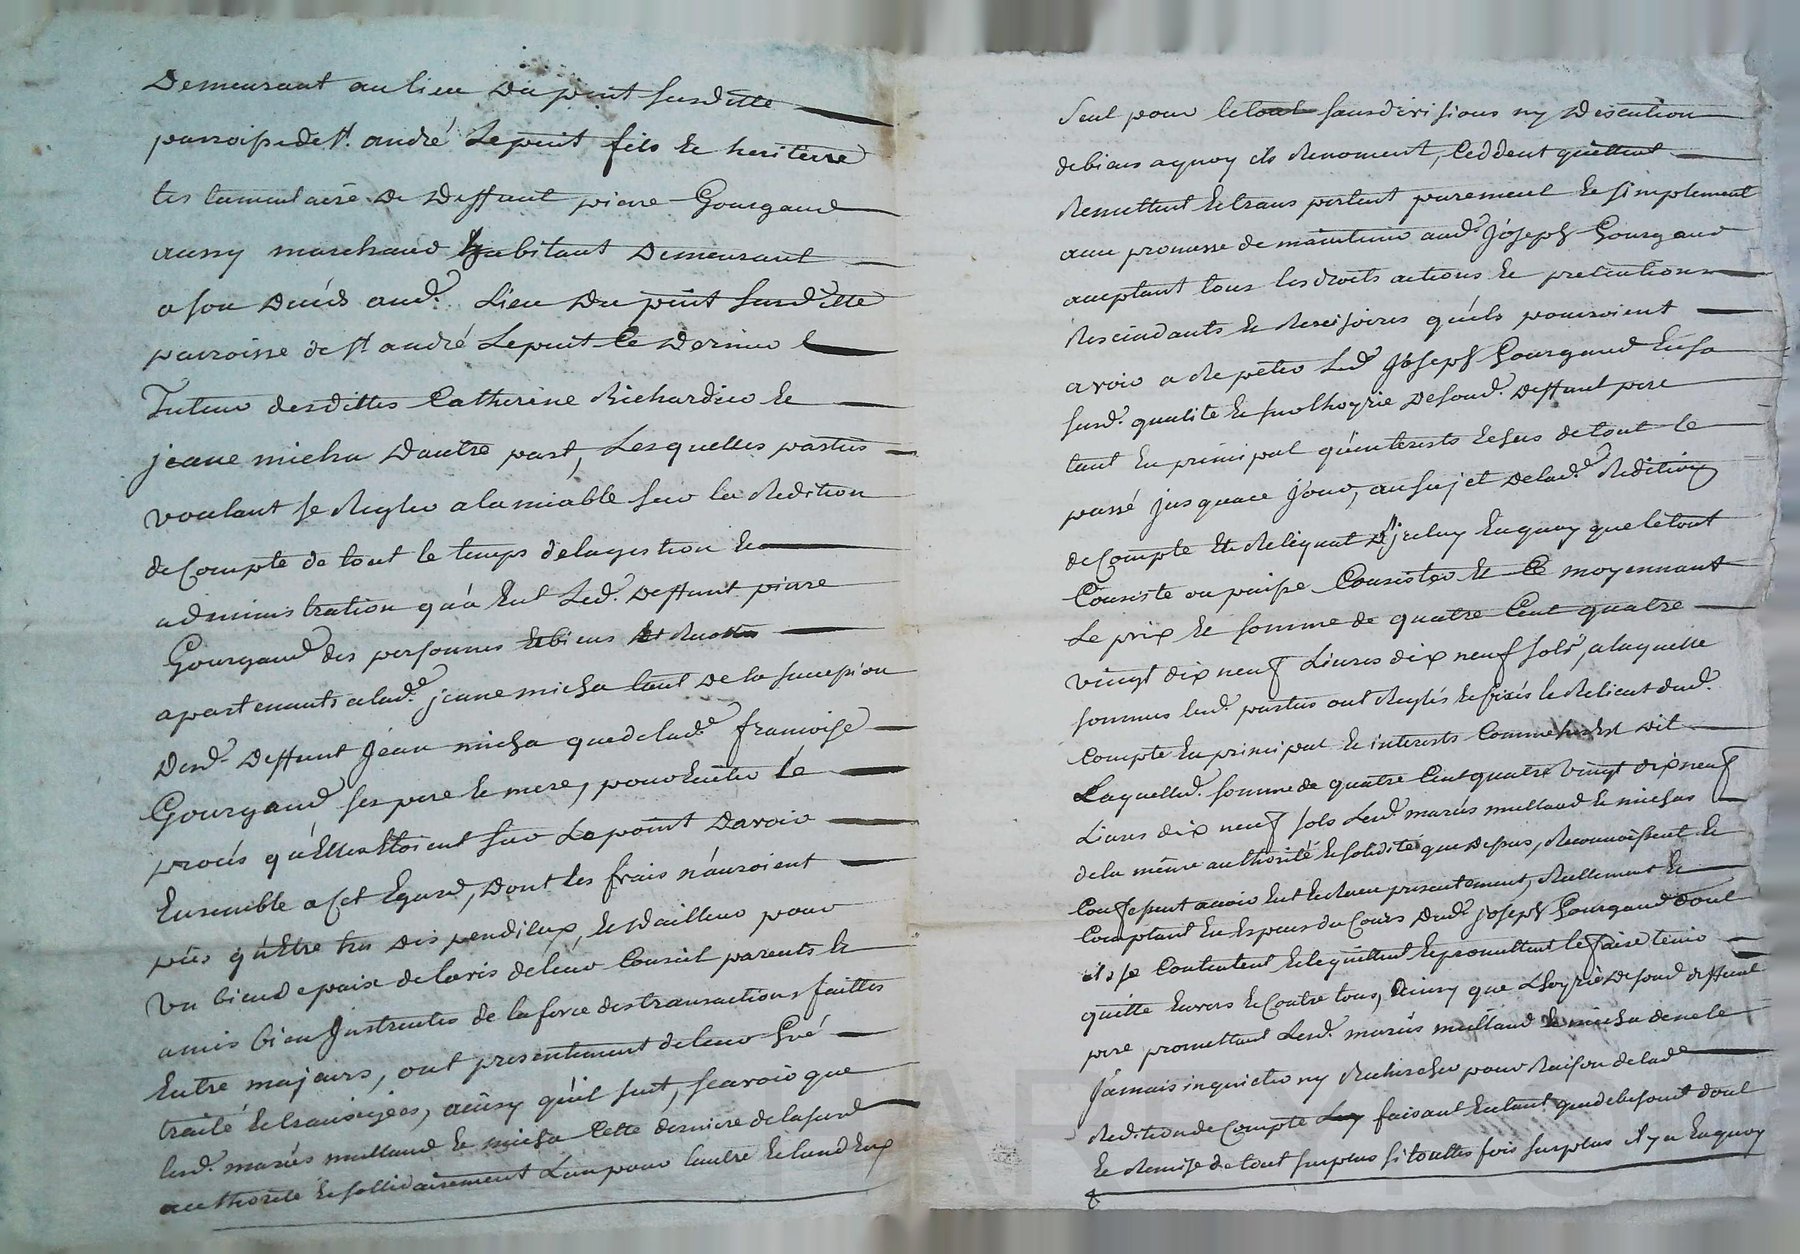 Demeurant au lieu Du puit susditte
parroisse de St. andré Lepuit fils Et heritiere
testamentaire De Deffunt pierre Gourgaud
aussy marchand habitant Demeurant
a son Decés aud. Lieu Du puit susditte
parroisse de St andré Lepuit Ce Dernier
Tuteur desdittes Catherine Richardier Et
jeane micha Dautre part, Lesquelles parties
voulant se Regler a lamiable sur la Redition
de Compte de tout le temps de la gestion Et
administration qu'a Eut Led. Deffunt pierre
Gourgaud des personnes Et biens Et
apartenants a lad.e jeane micha tant De la succession
Dud. Deffunt Jean micha que de lad.e francoise
Gourgaud ses pere Et mere, pour Eviter Le
procés qu'Elles Etoient sur Le point Davoir
Ensemble a Cet Egard, Dont les frais n'auroient
pûs qu'Etre tres Dispendieux, Et Dailleur pour
un bien de paix de lavis de leur Conseil parents Et
amis bien Instruits de la force des transactions faittes
Entre majeurs, ont presentement de leur Gré
traité Et transigées, ainsy qu'il suit, scavoir que
lesd. mariés mulland Et micha Cette derniere de la susd
authorité Et sollidairement Lun pour lautre Et lun deux
Seul pour le tout sans divisions ny Discution
de biens a quoy ils Renoncent, Ceddent quittent
Remettent Et transportent purement Et simplement
avec promesse de maintenir aud. Joseph Gourgaud
acceptant tous les droits actions Et pretentions
Rescindants Et Rescisoires qu'ils pourroient
avoir a Repeter Led. Joseph Gourgaud En sa
susd. qualité Et sur lhoyrie De soud. Deffunt pere
tant En principal qu'interests Et sus de tout le
passé jusqua ce jour, au sujet De lad.e Redition
de Compte Et Reliquat Diceluy En quoy que le tout
Consiste ou puisse Consister Et Ce moyennant
Le prix Et somme de quatre Cent quatre
vingt dix neuf Livres dix neuf sols, a laquelle
sommes lesd. parties ont Reglés Et fixés le Relicat dud.
Compte En principal Et interests Comme Dit
Laquelle d. somme de quatre Cent quatre vingt dix neuf
Livres dix neuf sols Lesd. mariés mulland Et michas
de la même authorité Et solidité que Dessus, Reconnoissent Et
Confessent avoir Eut Et Receu presentement, Reellement Et
Comptant En Especes du Cours Dud. joseph Gourgaud Dont
ils se Contentent Et le quittent Et promettent le faire tenir
quitte Envers Et Contre tous, Ainsy que Lhoyrie De soud deffunt
pere promettant Lesd. mariés mulland Et micha de ne le
Jamais inquieter ny Rechercher pour Raison de lad.e
Redition de Compte Luy faisant Entant que de besoint dont
Et Remise de tout surplus si touttes fois surplus il y a En quoy